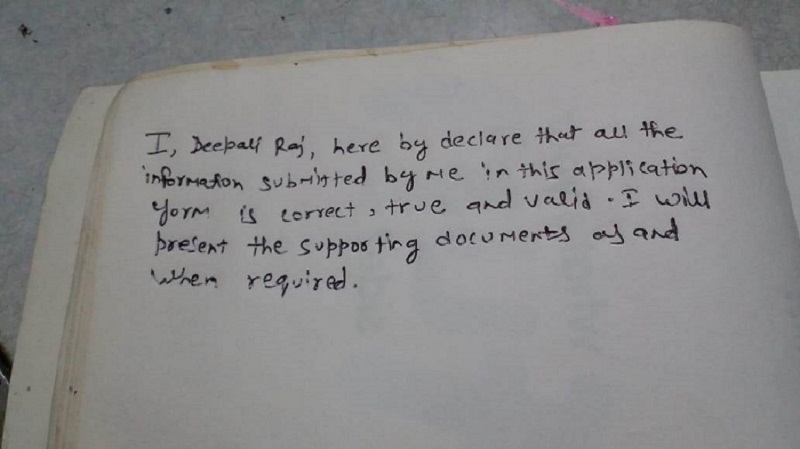 I, Deepali Raj, here by declare that all the
information submitted by me in this application
form is correct, true and valid. I will
present the supporting documents as and
when required.